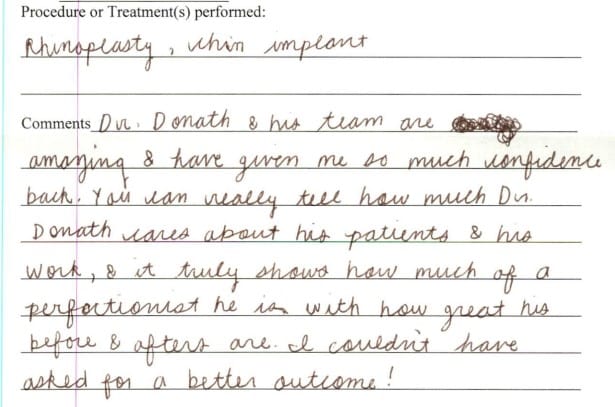 Procedure or Treatment(s) performed:
Rhinoplasty, chin implant
Comments Dr. Donath & his team are
amazing & have given me so much confidence
back. You can really tell how much Dr.
Donath cares about his patients & his
work, & it truly shows how much of a
perfectionist he is with how great his
before & afters are. I couldn't have
asked for a better outcome!